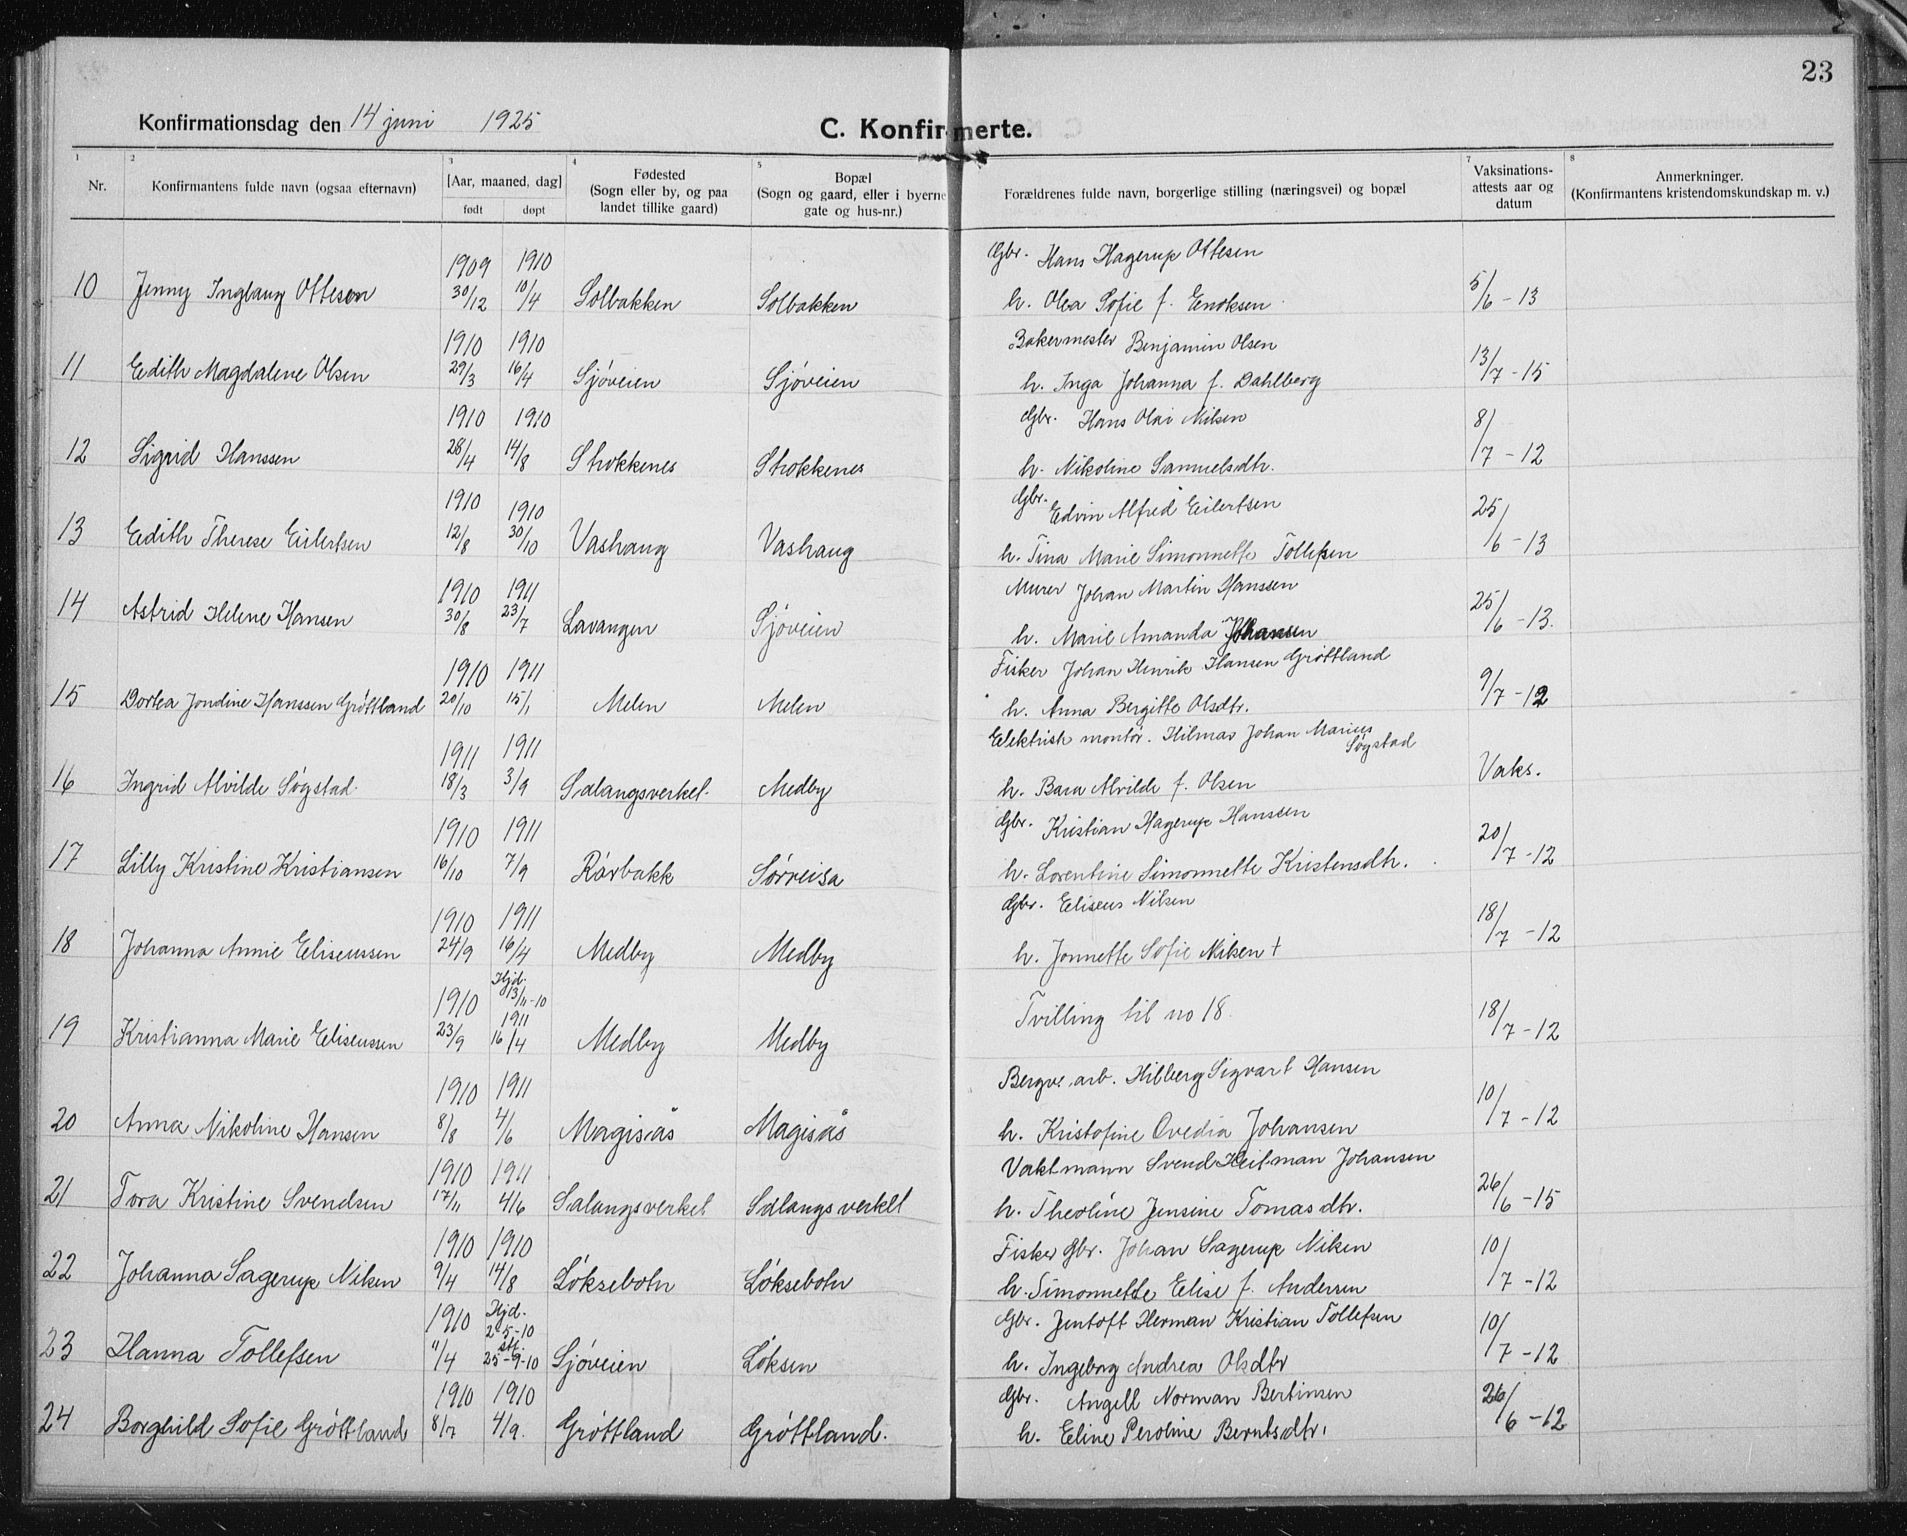 23
Konfirmationsdag den 14 juni 1925
C. Konfirmerte.
1 2 3 4 5 7 8
Nr. Konfirmantens fulde navn (ogsaa efternavn) [Aar, maaned, dag] født døpt Fødested (Sogn eller by, og paa landet tillike gaard) Bopæl (Sogn og gaard, eller i byerne gate og hus-nr.) Forældrenes fulde navn, borgerlige stilling (næringsvei) og bopæl Vaksinations-attests aar og datum Anmerkninger. (Konfirmantens kristendomskundskap m. v.)
1909 1910 Gbr. Hans Hagerup Ottesen
10 Jenny Inglaug Ottesen 30/12 10/4 Solbakken Solbakken h. Olea Sofie f. Enoksen 5/6-13
1910 1910 Bakermester Benjamin Olsen
11 Edith Magdalene Olsen 29/3 16/4 Sjøveien Sjøveien h. Inga Johanna f. Dahlberg 13/7-15
1910 1910 Gbr. Hans Olai Nilsen
12 Sigrid Hanssen 28/4 14/8 Strokkenes Strokkenes h. Nikoline Samuelsdtr. 8/7-12
1910 1910 Gbr. Edvin Alfred Eilertsen
13 Edith Therese Eilertsen 12/8 30/10 Vashaug Vashaug h. Tina Marie Simonnette Tollefsen 25/6-13
1910 1911 Murer Johan Martin Hanssen
14 Astrid Helene Hansen 30/8 23/7 Lavangen Sjøveien h. Marie Amanda Johansen 25/6-13.
1910 1911 Fisker Johan Henrik Hansen Grøttland
15 Dortea Jondine Hanssen Grøttland 20/10 15/1 Melen Melen h. Anna Bergitte Olsdtr. 9/7-12
1911 1911 Elektrisk montør. Hilmar Johan Marius Søgstad
16 Ingrid Alvilde Søgstad 18/3 3/9 Salangsverket. Medby h. Bara Alvilde f. Olsen Vaks.
1910 1911 Gbr. Kristian Hagerup Hanssen
17 Lilly Kristine Kristiansen 16/10 7/9 Rørbakk Sørreisa h. Lorentine Simonnette Kristensdtr. 20/7-12
1910 1911 Gbr. Eliseus Nilsen
18 Johanna Annie Eliseussen 24/9 16/4 Medby Medby h. Jonnette Sofie Nilsen † 18/7-12
1910 Hjd. 13/11-10 1911
19 Kristianna Marie Eliseussen 23/9 16/4 Medby Medby Tvilling til no 18. 18/7-12
1910 1911 Bergv. arb. Hilberg Sigvart Hansen
20 Anna Nikoline Hansen 8/8 4/6 Magisås Magisås h. Kristofine Ovedia Johansen 10/7-12
1910 1911 Vaktmann Svend Heitman Johansen
21 Tora Kristine Svendsen 17/11 4/6 Salangsverket Salangsverket h. Theoline Jensine Tomasdtr. 26/6-15
1910 1910 Fisker Gbr. Johan Sagerup Nilsen
22 Johanna Sagerup Nilsen 9/4 14/8 Løksebotn Løksebotn h. Simonnette Elise f. Andersen 10/7-12
1910 Hjd. 2-5-10 Gbr. Jentoft Herman Kristian Tollefsen
23 Hanna Tollefsen 11/4 stf. 25-9-10 Sjøveien Løksen h. Ingeborg Andrea Olsdtr 10/7-12
1910 1910 Gbr. Angell Norman Bertinsen
24 Borghild Sofie Grøttland 8/7 4/9. Grøttland Grøttland. h. Eline Peroline Berntsdtr. 26/6-12